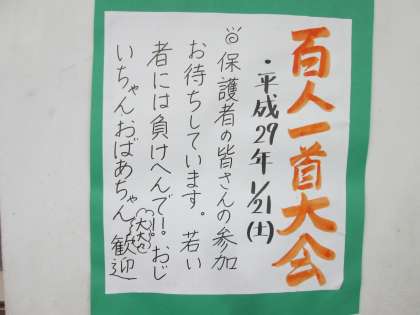 百人一首大会
・平成29年1/21(土)
◎保護者の皆さんの参加
お待ちしています。若い
者には負けへんで!!おじ
いちゃんおばあちゃん大大大歓迎